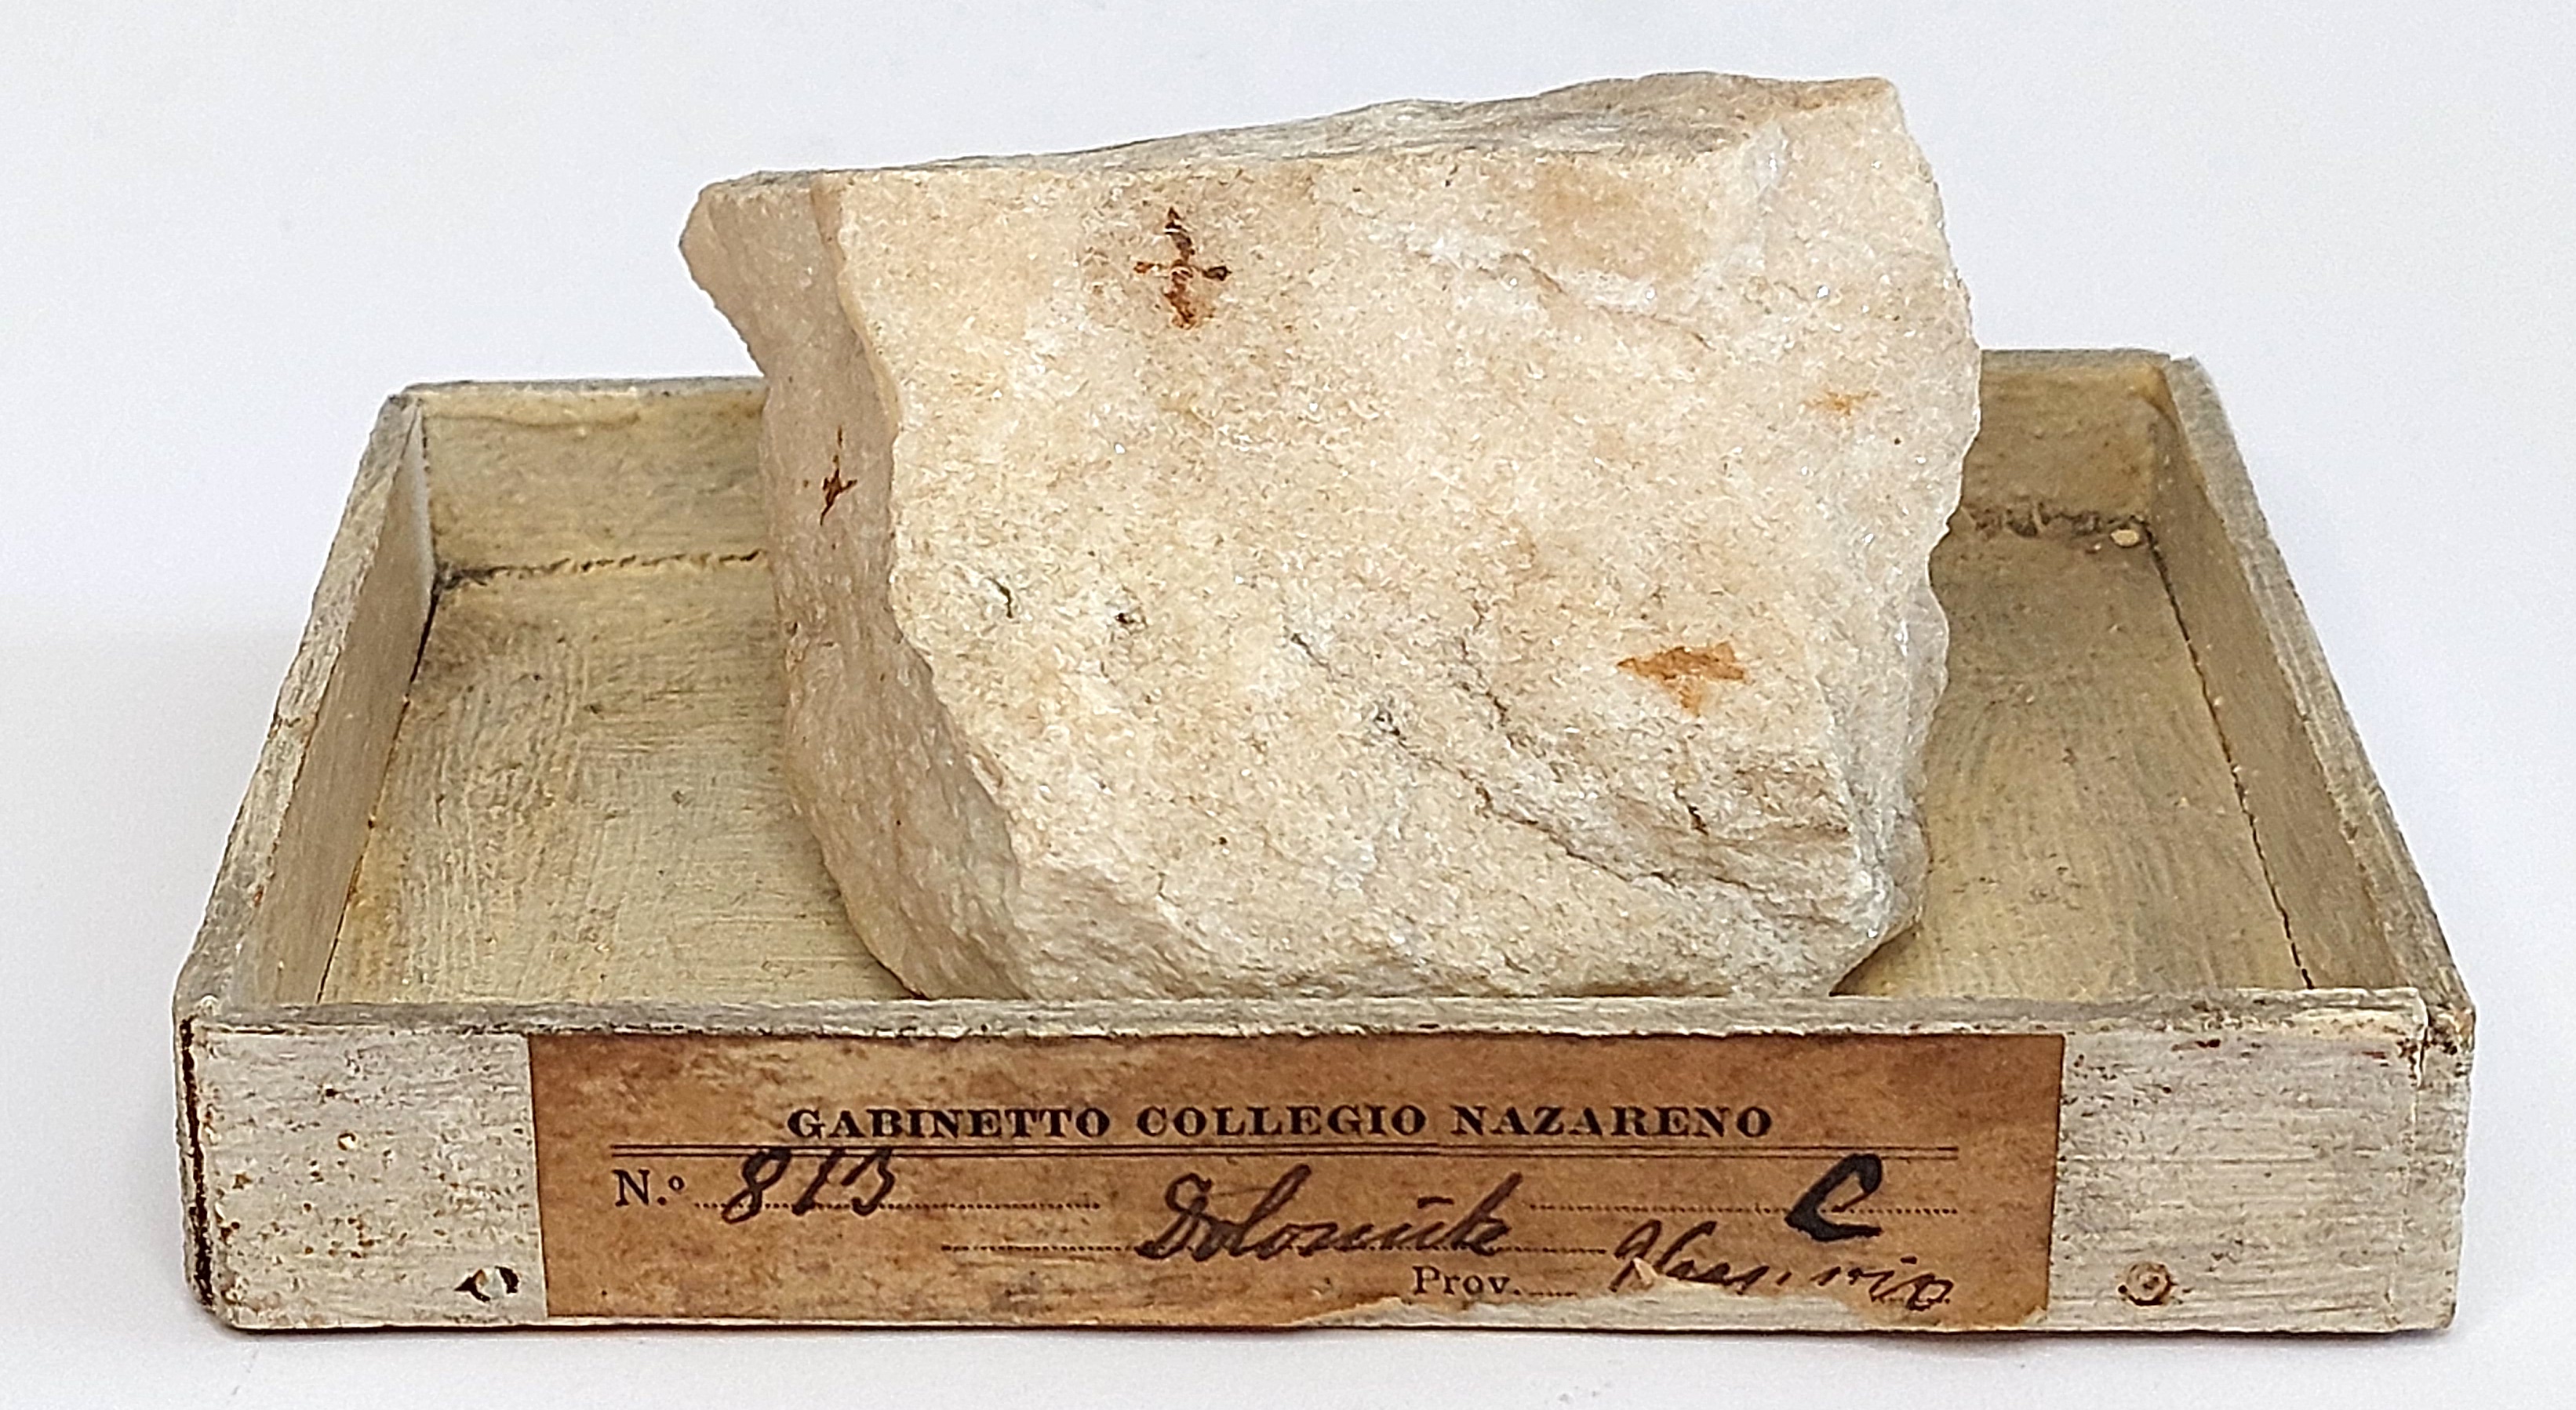 GABINETTO COLLEGIO NAZARENO
N.º 813 C
Dolomite
Prov.